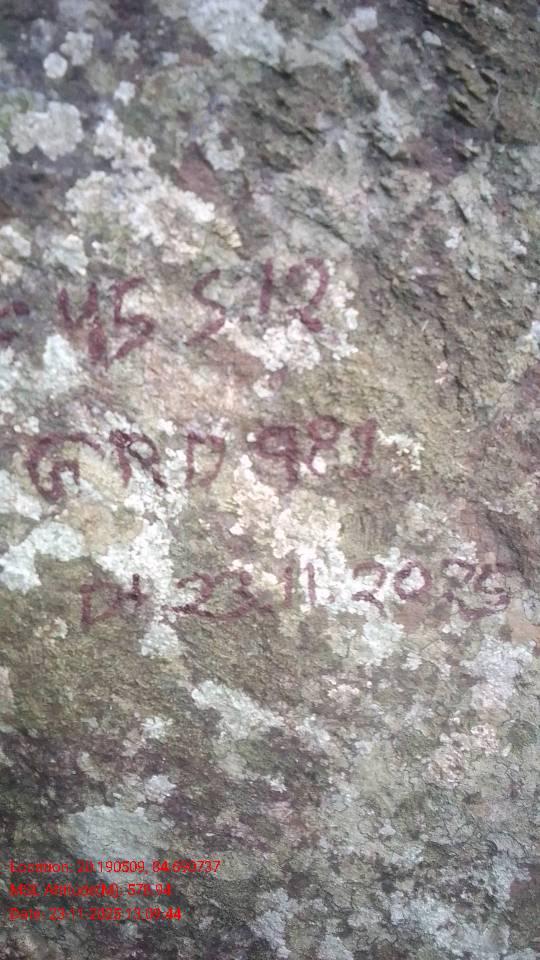 45 S 12
GRD 981
Dt 23.11.2025
Location: 28.190509, 84.690737
MSL Altitude(M): 578.94
Date: 23-11-2025 13:09:44